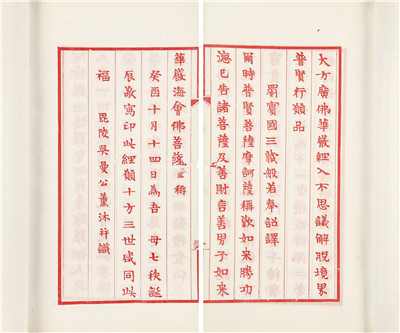 大方廣佛華嚴經入不思議解脫境界
普賢行願品
罽賓國三藏般若奉詔譯
爾時普賢菩薩摩訶薩稱歎如來勝功
德已告諸菩薩及善財言善男子如來
華嚴海會佛菩薩三稱
癸酉十月十四日為吾 母七秩誕
辰敬寫印此經願十方三世咸同此
福 毘陵吳曼公薰沐拜識